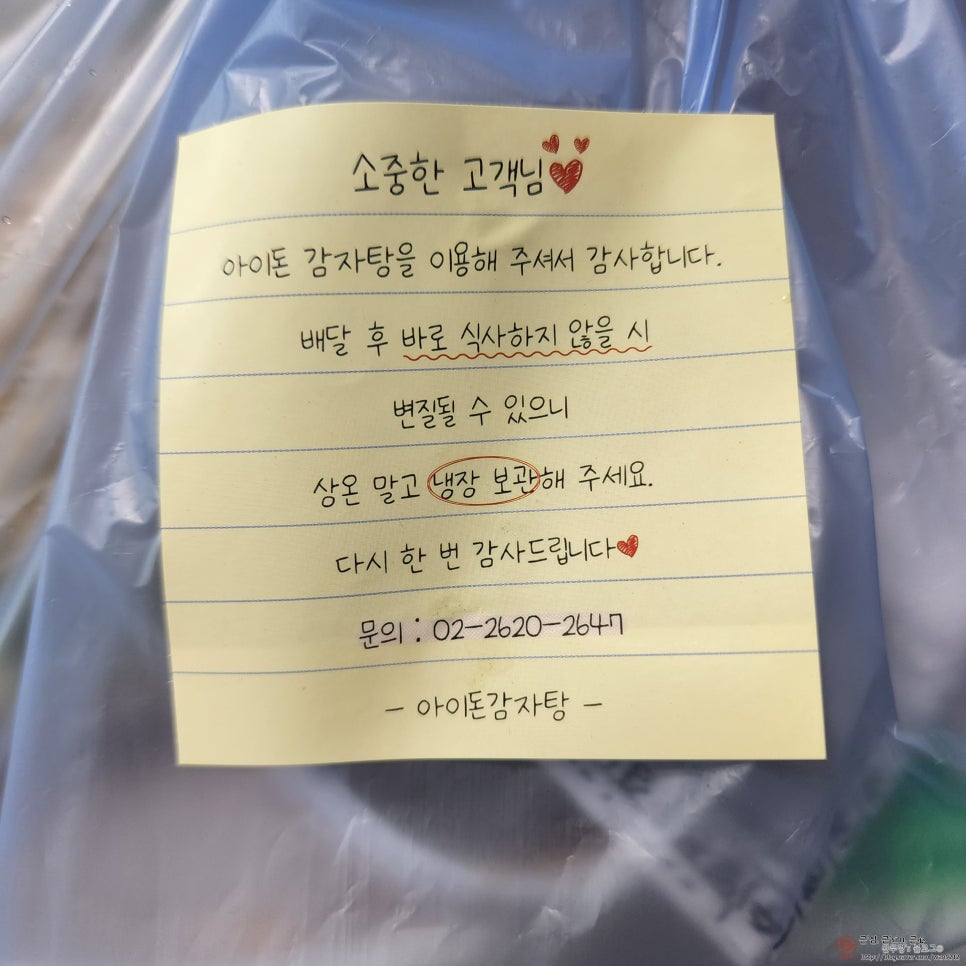 소중한 고객님
아이돈 감자탕을 이용해 주셔서 감사합니다.
배달 후 바로 식사하지 않을 시
변질될 수 있으니
상온 말고 냉장 보관해 주세요.
다시 한 번 감사드립니다
문의 : 02-2620-2647
- 아이돈감자탕 -